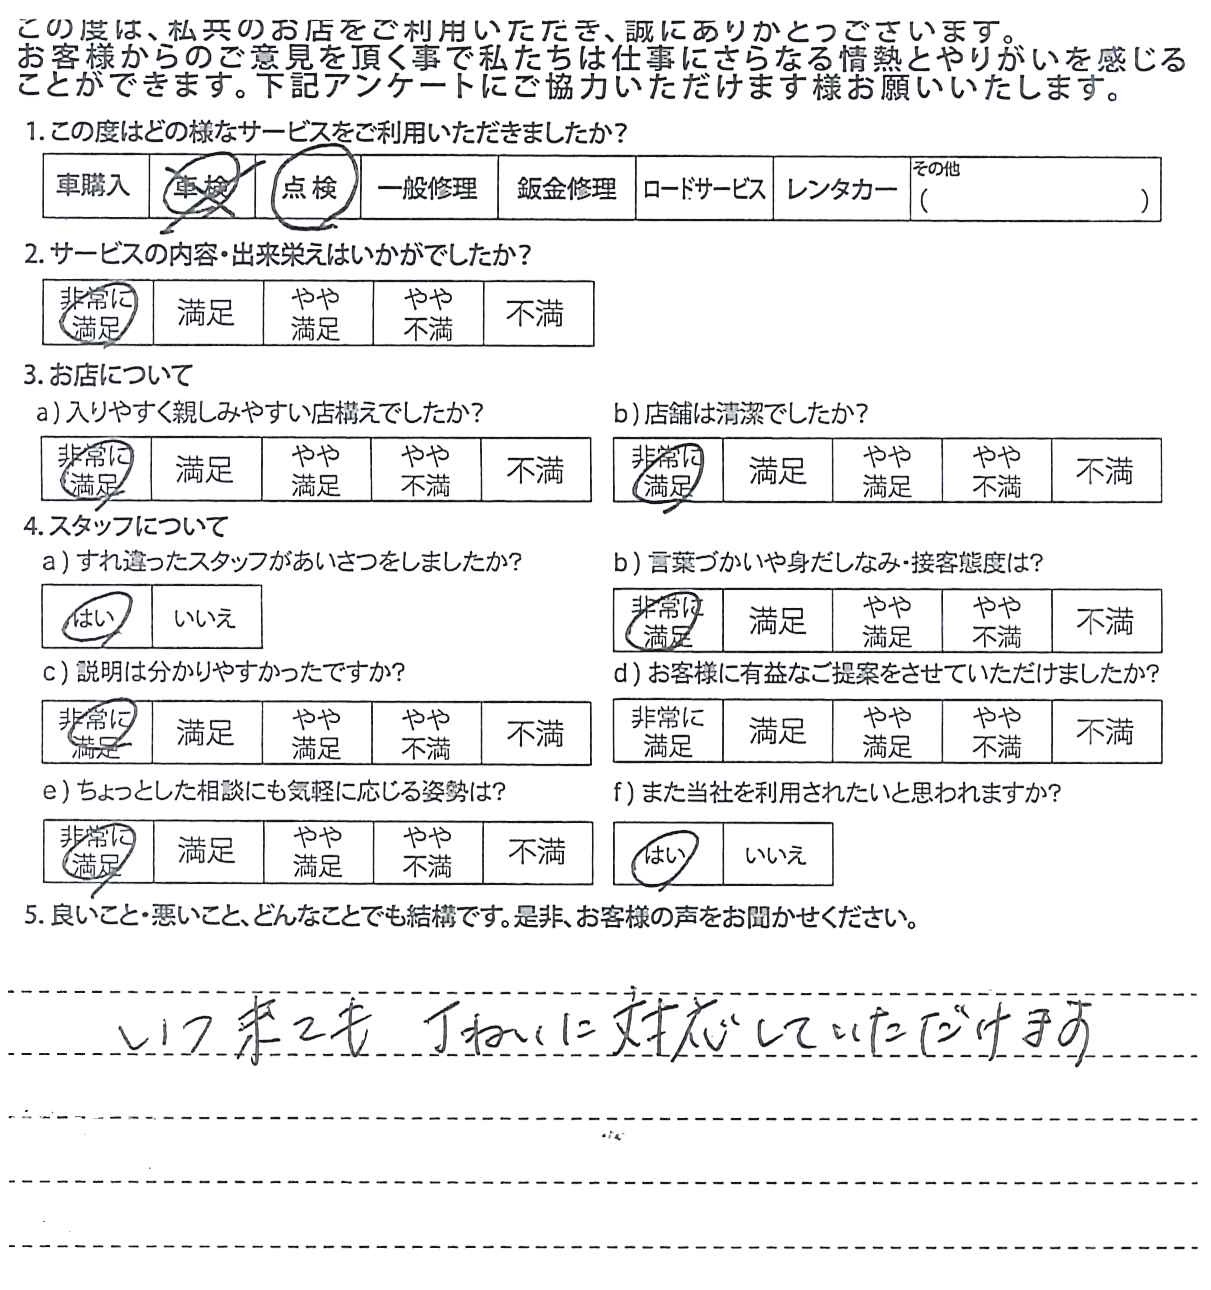 この度は、私共のお店をご利用いただき、誠にありがとうございます。
お客様からのご意見を頂く事で私たちは仕事にさらなる情熱とやりがいを感じる
ことができます。下記アンケートにご協力いただけます様お願いいたします。
1. この度はどの様なサービスをご利用いただきましたか?
車購入 車検 点検 一般修理 鈑金修理 ロードサービス レンタカー その他 ( )
2. サービスの内容・出来栄えはいかがでしたか?
非常に満足 満足 やや満足 やや不満 不満
3. お店について
a) 入りやすく親しみやすい店構えでしたか?
非常に満足 満足 やや満足 やや不満 不満
b) 店舗は清潔でしたか?
非常に満足 満足 やや満足 やや不満 不満
4. スタッフについて
a) すれ違ったスタッフがあいさつをしましたか?
はい いいえ
b) 言葉づかいや身だしなみ・接客態度は?
非常に満足 満足 やや満足 やや不満 不満
c) 説明は分かりやすかったですか?
非常に満足 満足 やや満足 やや不満 不満
d) お客様に有益なご提案をさせていただけましたか?
非常に満足 満足 やや満足 やや不満 不満
e) ちょっとした相談にも気軽に応じる姿勢は?
非常に満足 満足 やや満足 やや不満 不満
f) また当社を利用されたいと思われますか?
はい いいえ
5. 良いこと・悪いこと、どんなことでも結構です。是非、お客様の声をお聞かせください。
いつ来ても 丁ねいに対応していただけます